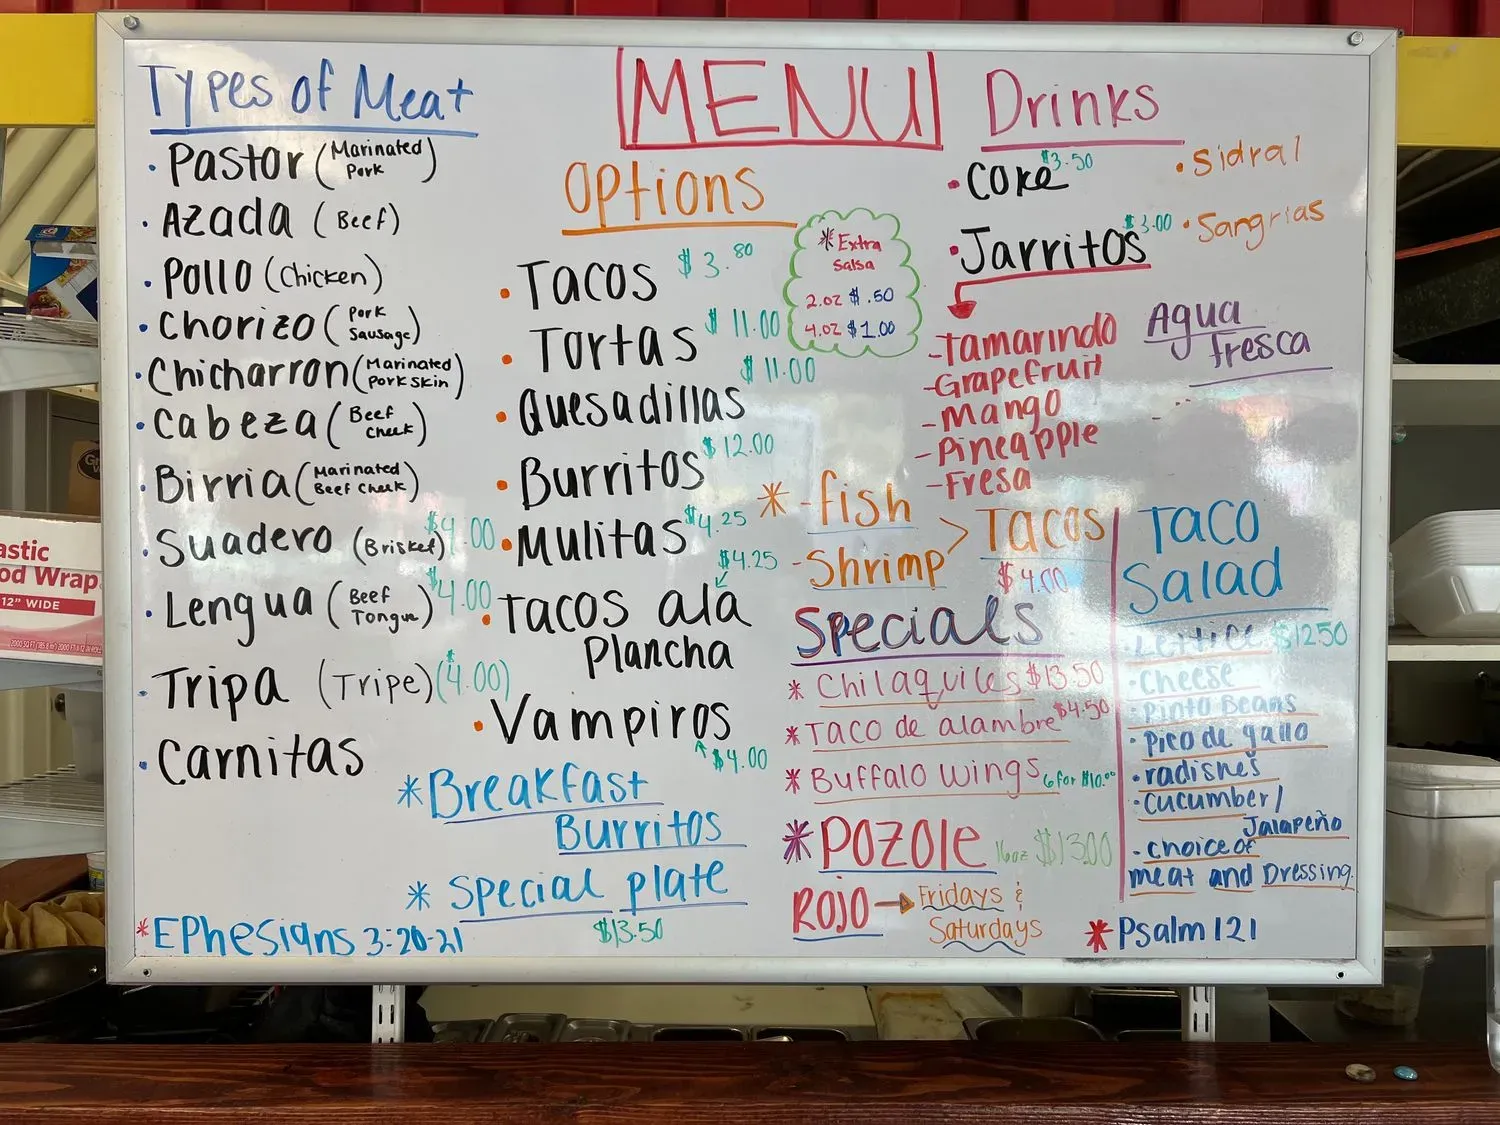 MENU
Types of Meat
· Pastor (Marinated Pork)
· Azada (Beef)
· Pollo (Chicken)
· Chorizo (Pork Sausage)
· Chicharron (Marinated Pork skin)
· Cabeza (Beef Cheek)
· Birria (Marinated Beef Cheek)
· Suadero (Brisket) $4.00
· Lengua (Beef Tongue) $4.00
· Tripa (Tripe) ($4.00)
· Carnitas
*Ephesians 3:20-21
Options
· Tacos $3.80
· Tortas $11.00
· Quesadillas $11.00
· Burritos $12.00
· Mulitas $4.25
· Tacos ala $4.25
Plancha
· Vampiros
$4.00
*Breakfast
Burritos
* Special plate
$13.50
*Extra
Salsa
2.oz $.50
4.oz $1.00
Drinks
· Coke $3.50
· Sidral
· Jarritos $3.00
· Sangrias
-Tamarindo
-Grapefruit
-Mango
-Pineapple
-Fresa
Agua
fresca
* -fish
-Shrimp > Tacos
$4.00
Specials
* Chilaquiles $13.50
* Taco de alambre $4.50
* Buffalo wings 6 for $10.00
*Pozole 16oz $13.00
Rojo → Fridays &
Saturdays
Taco
Salad
· Lettice $12.50
· Cheese
· Pinto Beans
· Pico de gallo
· radishes
· Cucumber/
Jalapeño
- choice of
meat and Dressing.
*Psalm 121
astic
od Wrap
12" WIDE